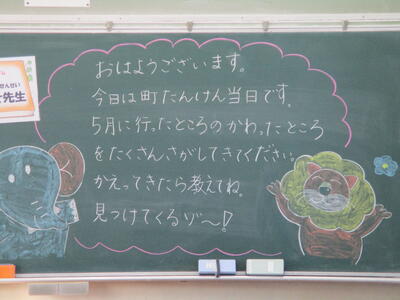 おはようございます。
今日は町たんけん当日です。
5月に行ったところのかわったところ
をたくさんさがしてきてください。
かえってきたら教えてね。
見っけてくるゾ〜!
せんせい
先生